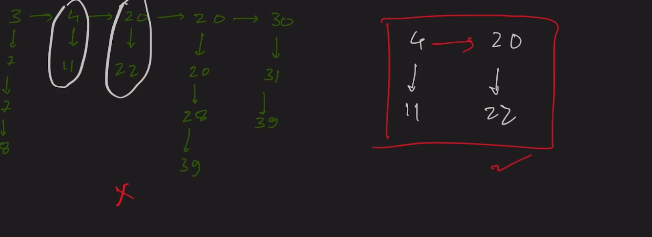 3 → 4 → 20 → 20 → 30
↓ ↓ ↓ ↓ ↓
7 11 22 20 31
↓ ↓ ↓
7 28 39
↓ ↓
8 39
4 → 20
↓ ↓
11 22